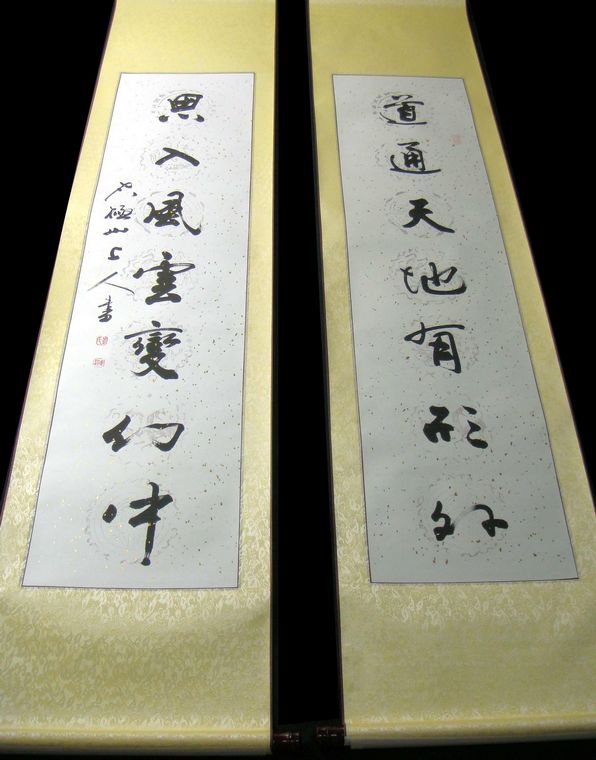 道通天地有形外
思入風雲變幻中
太極山上人書